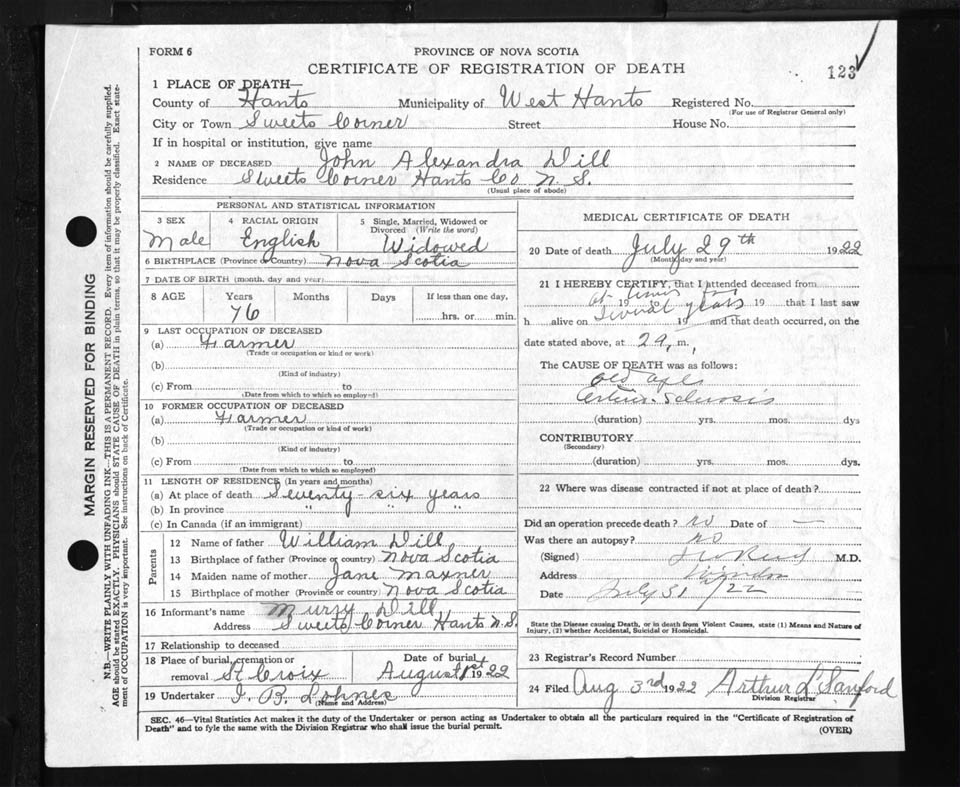 FORM 6
PROVINCE OF NOVA SCOTIA
CERTIFICATE OF REGISTRATION OF DEATH
123
1 PLACE OF DEATH—
County of Hants Municipality of West Hants Registered No.
(For use of Registrar General only)
City or Town Sweets Corner Street House No.
If in hospital or institution, give name
2 NAME OF DECEASED John Alexandra Dill
Residence Sweets Corner Hants Co N.S.
(Usual place of abode)
PERSONAL AND STATISTICAL INFORMATION
3 SEX 4 RACIAL ORIGIN 5 Single, Married, Widowed or Divorced (Write the word)
Male English Widowed
6 BIRTHPLACE (Province or Country) Nova Scotia
7 DATE OF BIRTH (month, day and year)
8 AGE Years Months Days If less than one day,
76 hrs. or min.
9 LAST OCCUPATION OF DECEASED
(a) Farmer
(Trade or occupation or kind or work)
(b)
(Kind of industry)
(c) From to
(Date from which to which so employed)
10 FORMER OCCUPATION OF DECEASED
(a) Farmer
(Trade or occupation or kind of work)
(b)
(Kind of industry)
(c) From to
(Date from which to which so employed)
11 LENGTH OF RESIDENCE (In years and months)
(a) At place of death Seventy-six years
(b) In province " " "
(c) In Canada (if an immigrant)
Parents
12 Name of father William Dill
13 Birthplace of father (Province or country) Nova Scotia
14 Maiden name of mother Jane Maxner
15 Birthplace of mother (Province or country) Nova Scotia
16 Informant's name Dill
Address Sweets Corner Hants N.S.
17 Relationship to deceased
18 Place of burial, cremation or removal St Croix Date of burial August 1st 1922
19 Undertaker J. B. Lohnes
(Name and Address)
MEDICAL CERTIFICATE OF DEATH
20 Date of death July 29th 1922
(Month, day and year)
21 I HEREBY CERTIFY, that I attended deceased from
at times for 19 to 19 that I last saw
several years
h alive on 19 and that death occurred, on the
date stated above, at 29, m,
The CAUSE OF DEATH was as follows:
Old age
Arterio-Sclerosis
(duration) yrs. mos. dys
CONTRIBUTORY
(Secondary)
(duration) yrs. mos. dys.
22 Where was disease contracted if not at place of death?
Did an operation precede death? no Date of —
Was there an autopsy? no
(Signed) M.D.
Address Windsor
Date July 31/22
State the Disease causing Death, or in death from Violent Causes, state (1) Means and Nature of
Injury, (2) whether Accidental, Suicidal or Homicidal.
23 Registrar's Record Number
24 Filed Aug 3rd 1922 Arthur L Sanford
Division Registrar
SEC. 46—Vital Statistics Act makes it the duty of the Undertaker or person acting as Undertaker to obtain all the particulars required in the "Certificate of Registration of
Death" and to fyle the same with the Division Registrar who shall issue the burial permit.
(OVER)
MARGIN RESERVED FOR BINDING
N.B.—WRITE PLAINLY WITH UNFADING INK—THIS IS A PERMANENT RECORD. Every item of information should be carefully supplied.
AGE should be stated EXACTLY. PHYSICIANS should STATE CAUSE OF DEATH in plain terms, so that it may be properly classified. Exact state-
ment of OCCUPATION is very important. See instructions on back of Certificate.